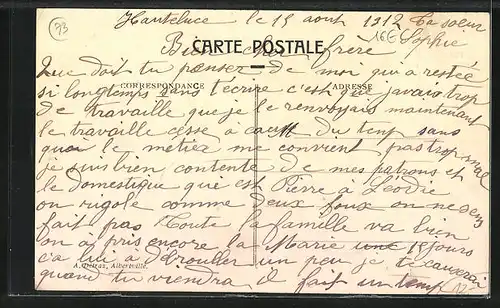 73
Hauteluce le 15 aout 1912 ta soeur
16E Sophie
Bien cher frère
CARTE POSTALE
Que doit tu penser de moi qui a restée
CORRESPONDANCE
ADRESSE
si longtemps sans t'écrire c'est que javais trop
de travaille que je le renvoyais maintenant
le travaille cesse a cause du temp sans
quoi le métier me convient pas trop mal
je suis bien contente de mes patrons et
le domestique que est Pierre a Léodie
on rigole comme deux foux on ne sen
fait pas Toute la famille va bien
on à pris encore la Marie une 15 jours
ca lui à un peu je
A. Albertville.
quand tu viendra il fait un temp